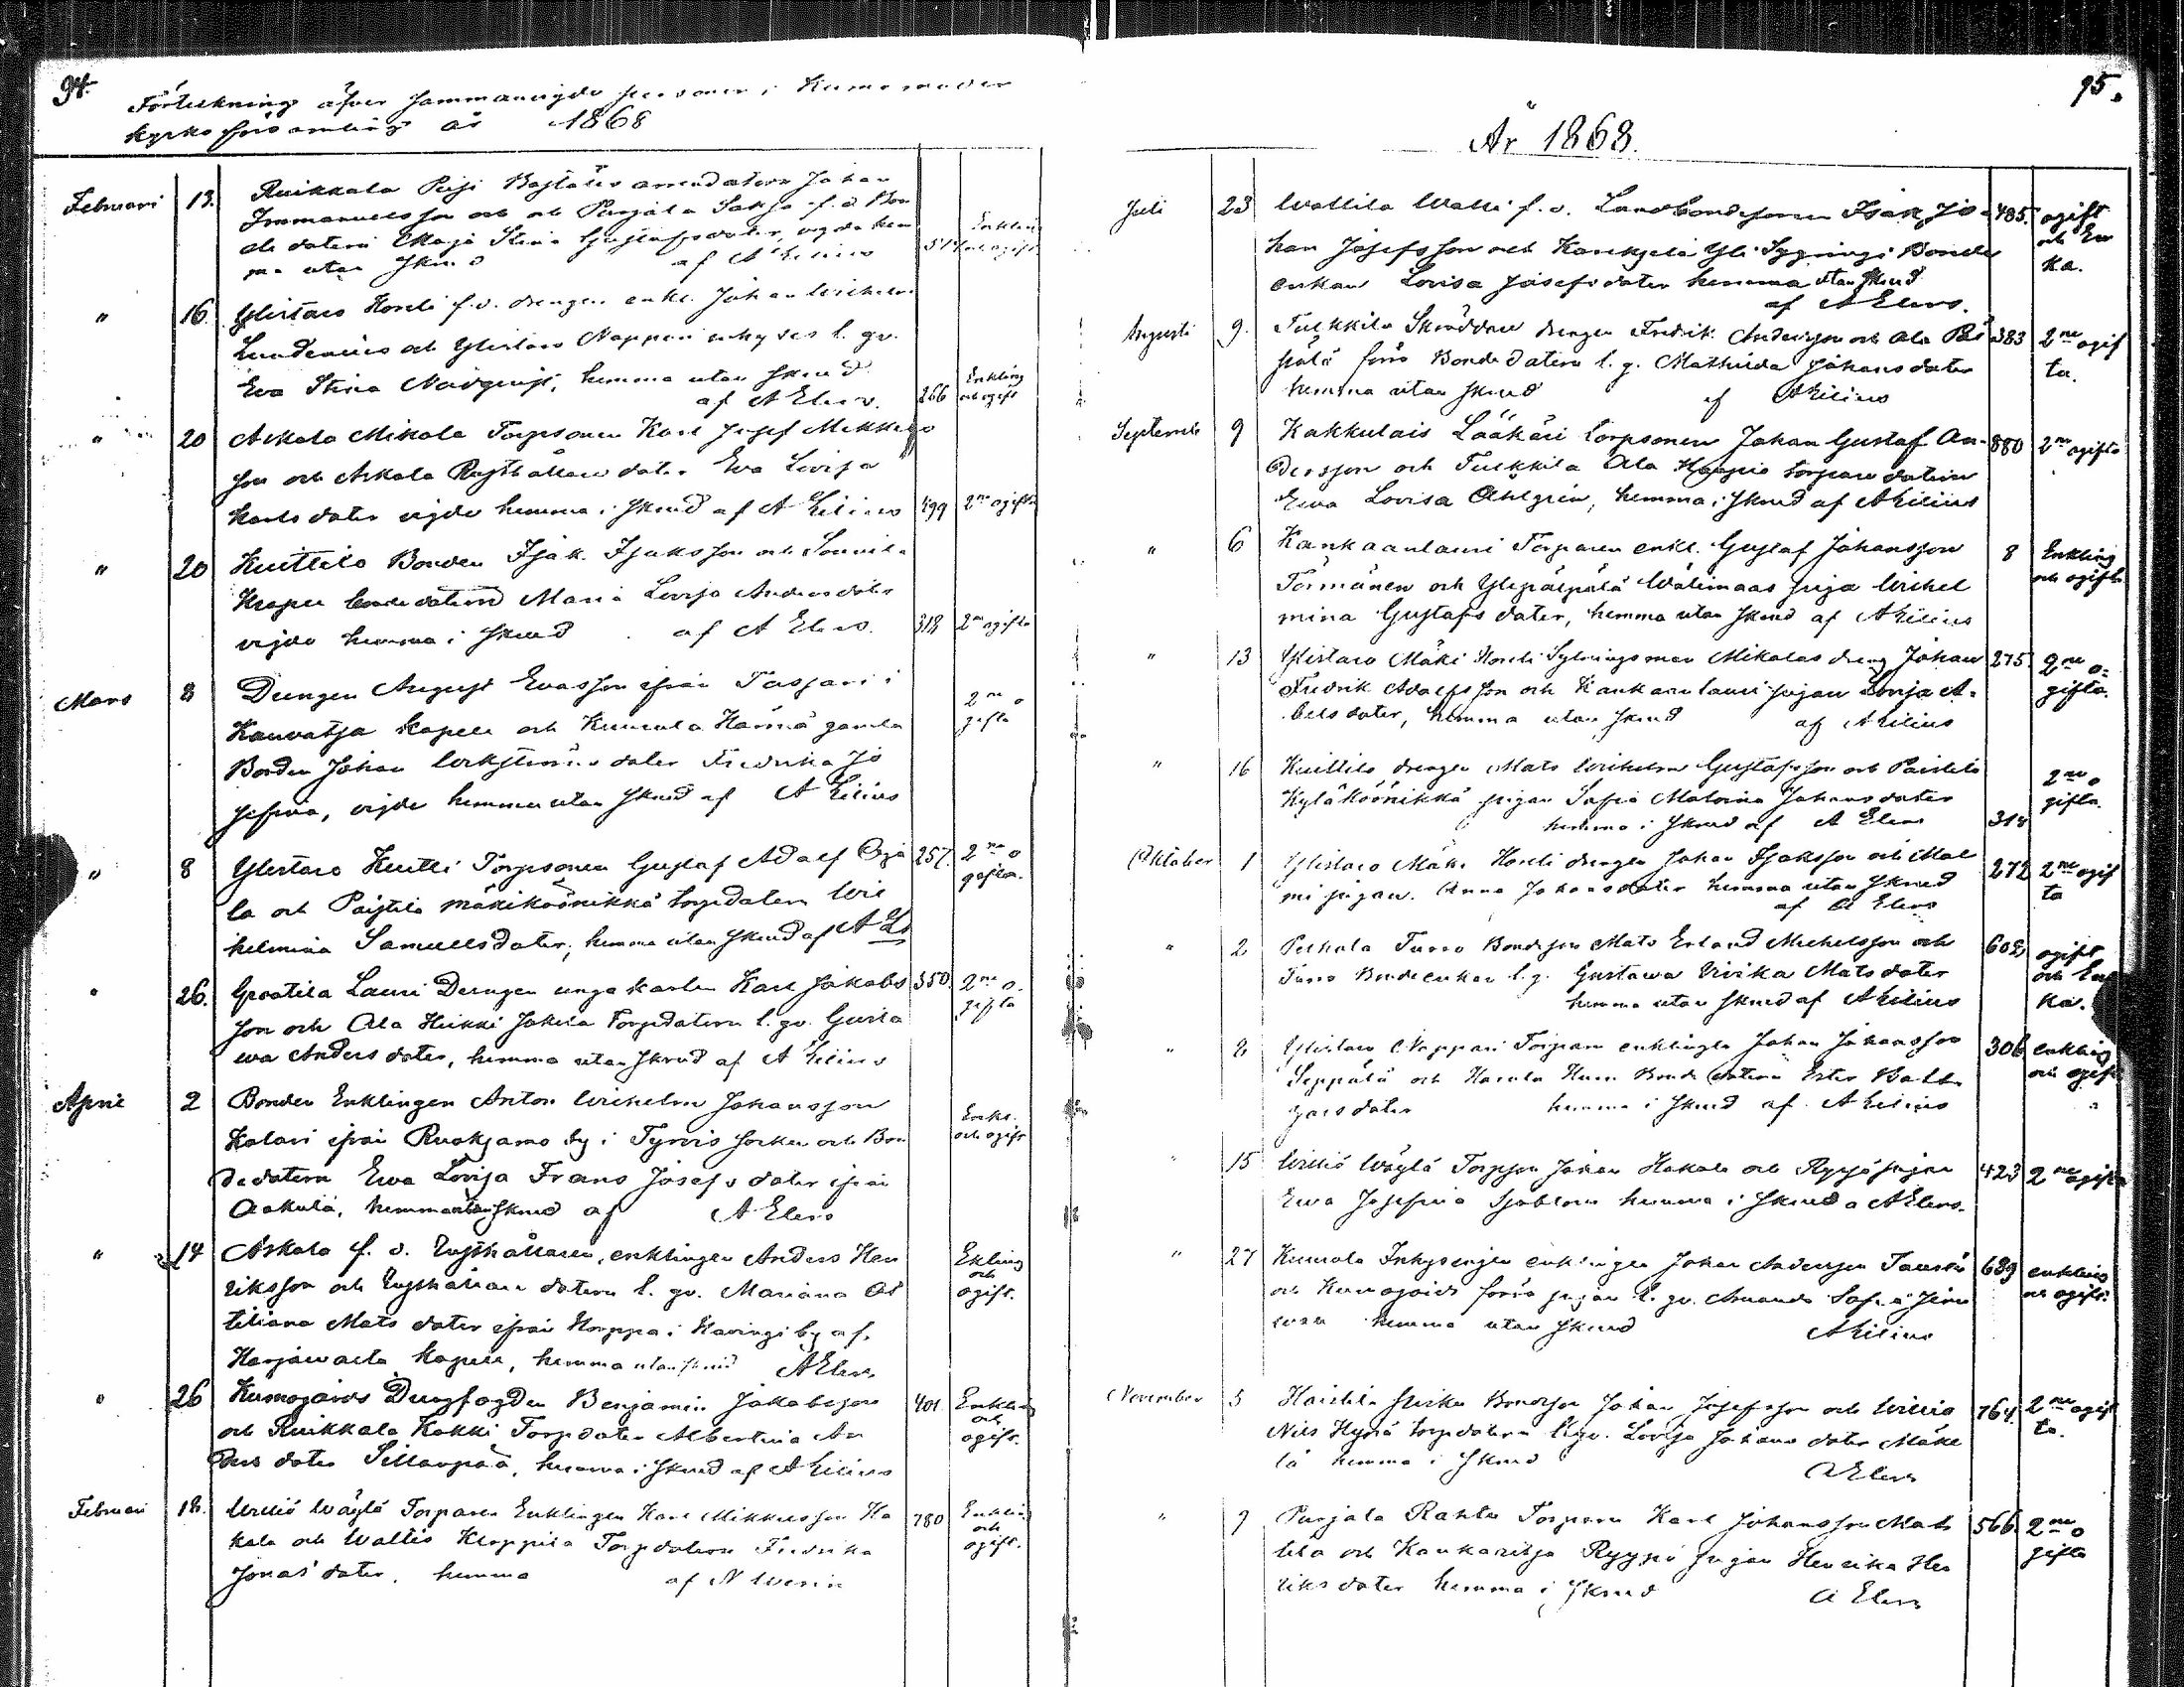 94.
Förteckning öfver sammanvigde personer i Kumo moder
kyrko församling år 1868
Februari 13. Ruikkala Pirji Boställes arrendatorn Johan
Immanuelsson och Purjala f. d. Bon
de dotern Maja Stina Gustafsdoter, vigde hem
ma utan skrud af A Elers 517 Enkling och ogift
" 16. Ylistaro Hordi f.d. drengen enkl. Johan Wilhelm
Lundenius och Ylistaro Nappari inhyses l. qv.
Eva Stina Nordqvist, hemma utan skrud
af A Elers. 266 Enkling och ogift
" 20 Askala Mikola Torpsonen Karl Josef Mikkels
son och Askala Rusthållare doter Eva Lovisa
Karls doter vigde hemma i skrud af A Elers 499 2ne ogifta
" 20 Kuittilo Bonden Isak Isaksson och
Kapell bonde dotern Maria Lovisa Anders doter
vigde hemma i skrud af A Elers. 318 2ne ogifta
Mars 8 Drengen August Evasson ifrån i
Kauvatsa kapell och Kumola Härmä gamla
Bonden Johan doter Fredrika Jo
sefina, vigde hemma utan skrud af A Elers 2ne o
gifta
" 8 Ylistaro Kuitti Torpsonen Gustaf Adolf Oja
la och Paistila Mäkiköönikkä torpdotern Wil
helmina Samuelsdoter, hemma utan skrud af A Els 257. 2ne o
gifta.
" 26. Groatila Lauri Drengen unga karlen Karl Jakobs
son och Ala Heikki Jakula Torpdotern l. qv. Gusta
wa Anders doter, hemma utan skrud af A Elers 350. 2ne o-
gifta
April 2 Bonden Enklingen Anton Wilhelm Johansson
Kalari ifrån Ruoksamo by i Tyrvis socken och Bon
de dotern Ewa Lovisa Frans Josefs doter ifrån
Aakula, hemma utan skrud af A Elers Enkl.
och ogift
" 14 Askola f. d. Rusthållaren, enklingen Anders Hen
riksson och Rusthållare dotern l. qv. Mariana Ot
tiliana Mats doter ifrån Horppa i Havingi by af
Harjawalta kapell, hemma utan skrud A Elers Ekling
och
ogift.
" 26 Kumogårds Drengfogden Benjamin Jakobsson
och Ruikkala Kokki Torpdoter Albertina An
ders doter Sillanpää, hemma i skrud af A Elers 401. Enkling
och
ogift.
Februari 18. Willió Wäylä Torparen Enklingen Karl Mikkelsson Ha
kala och Wallis Kloppila Torpdotern Fredrika
Jonas doter. hemma af N 780 Enkling
och
ogift.
95.
År 1868.
Juli 23 Wallila Walli f.d. Landbondesonen Isak Jo-
han Josefsson och Yli Sypringi Bonde
enkan Lovisa Josefsdoter hemma utan skrud
af A Elers. 485. ogift
och En
ka.
Augusti 9. Tulkkila Skräddare drengen Fredrik Andersson och Ala Päi
pälä förra Bonde dotern l. q. Mathilda Johansdoter
hemma utan skrud af A Elers 383 2ne ogif
ta.
September 9 Kakkulais Lääkäri torpsonen Johan Gustaf An-
dersson och Tulkkila Ala Haapio torpare dotern
Ewa Lovisa Öhlgrén, hemma i skrud af A Elers 880 2ne ogifta
" 6 Kankaanlauri Torparen enkl. Gustaf Johansson
Törmänen och Ylipäipälä Wälimaas piga Wilhel
mina Gustafs doter, hemma utan skrud af A Elers 8 Enkling
och ogift
" 13 Ylistaro Mäki Hordi Sytningsman Mikolas dreng Johan
Fredrik Adolfsson och Kankaanlauri pigan Lovisa A-
bels doter, hemma utan skrud af A Elers 275 2ne o-
gifta.
" 16 Kuittilo drengen Mats Wilhelm Gustafsson och Paistila
Kyläköönikkä pigan Sofia Malvina Johans doter
hemma i skrud af A Elers 318 2ne o
gifta.
Oktober 1 Ylistaro Mäki Hordi drengen Johan Isaksson och Mal
mi pigan. Anna Johansdoter hemma utan skrud
af A Elers 272 2ne ogif
ta
" 2 Turro Bondeson Mats Erland Michelsson och
Turro Bondeenkan l. q. Gustawa Ulrika Mats doter
hemma utan skrud af A Elers ogift
och En
ka.
" 2 Ylistaro Nappari Torparen enklingen Johan Johansson
Seppälä och Harola Bonde dotern Ester Balt
zars doter hemma i skrud af A Elers 306 enkling
och ogift
" 15 Willió Wäylä Torpson Johan Hakala och Ryssä pigan
Ewa Josefina Sjöblom hemma i skrud a A Elers. 423 2ne ogifta
" 27 Kumola Inhysingen enklingen Johan Andersson
och Kumogårds förra pigan l. qv. Amanda Sofia
hemma utan skrud A Elers 689 enkling
och ogift.
November 5 Haistila Bondeson Johan Josefsson och Willió
Nils Hyrsä torpdotern l. qv. Lovisa Johans doter Mäke
lä hemma i skrud A Elers 764. 2ne ogif
ta.
" 7 Purjala Rahtu Torparen Karl Johansson Mat
tila och Kankaritsa Ryypö pigan Henrika Hen
riks doter hemma i skrud A Elers 566. 2ne o
gifta